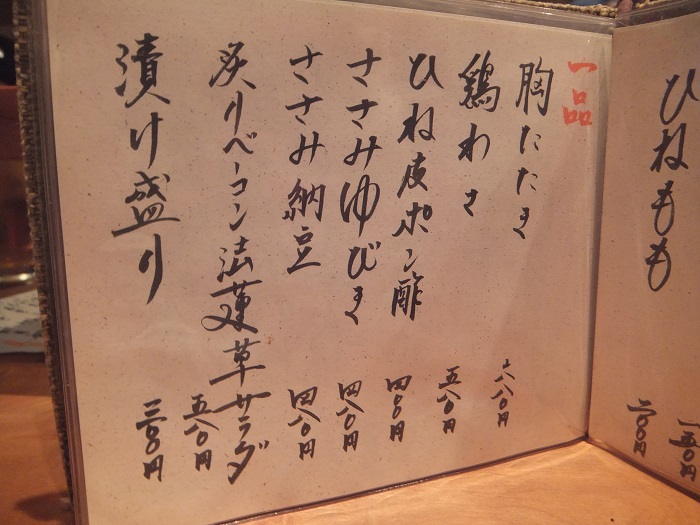 ひねもも
一五〇円
二〇〇円
一品
胸たたき
六八〇円
鶏わさ
五八〇円
ひね皮ポン酢
四〇〇円
ささみゆびき
四八〇円
ささみ納豆
四八〇円
炙りベーコン法蓮草サラダ
五八〇円
漬け盛り
三〇〇円